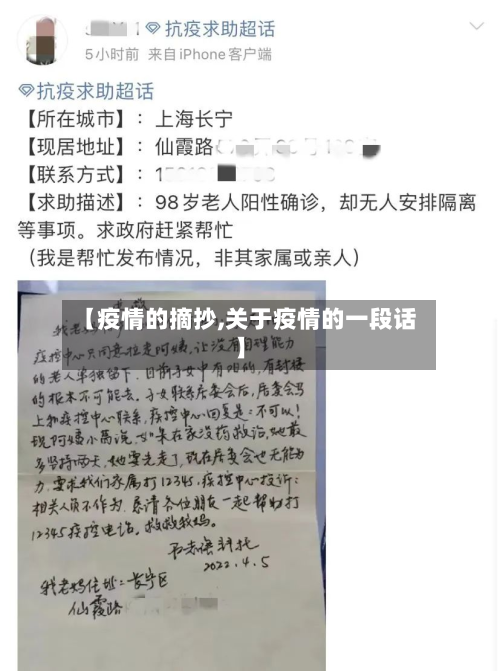 抗疫求助超话
5小时前 来自iPhone客户端
抗疫求助超话
【所在城市】：上海长宁
【现居地址】：仙霞路
【联系方式】：1
【求助描述】：98岁老人阳性确诊，却无人安排隔离
等事项。求政府赶紧帮忙
（我是帮忙发布情况，非其家属或亲人）
【疫情的摘抄,关于疫情的一段话
】
我老妈
疫控中心只同意拉走阿姨，让没有自理能力
的老人单独留下，目前子女中有阳的，有封楼
的根本不可能去。子女联系居委会后，居委会马
上和疫控中心联系，疫控中心回复是：不可以！
现阿姨小高说，如果在家没药救治，她最
多坚持两天，她要先走了，现在居委会也无能为
力，要求我们家属打12345，疫控中心投诉：
相关人员不作为，恳请各位朋友一起帮助打
12345疫控电话。救救我妈。
2022.4.5
我老妈住址：长宁区
仙霞路